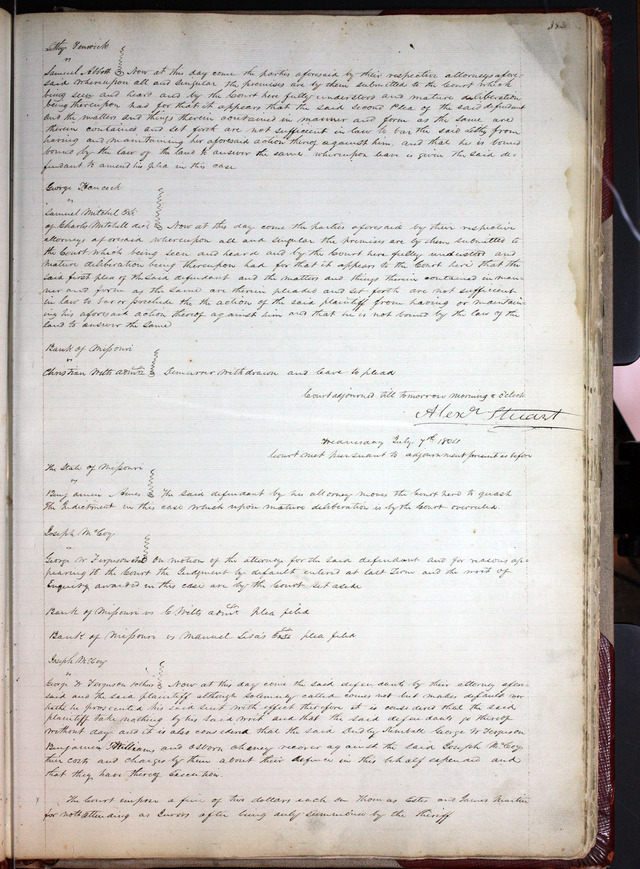 Letty Fenwick
"
Samuel Abbott Now at this day come the parties aforesaid by their respective attorneys afore-
said whereupon all and singular the premises are by them submitted to the Court which
being seen and heard and by the Court here fully understood and mature deliberation
being thereupon had for that it appears that the said second Plea of the said defendant
and the matters and things therein contained in manner and form as the same are
therein contained and set forth are not sufficient in law to bar the said Letty from
having and maintaining her aforesaid action thereof against him, and that he is bound
bound by the law of the land to answer the same whereupon leave is given the said de-
fendant to amend his plea in this case
George Hancock
"
Samuel Mitchel
of Charles Mitchell decd Now at this day come the parties aforesaid by their respective
attorneys aforesaid whereupon all and singular the premises are by them submitted to
the Court which being seen and heard and by the Court here fully understood and
mature deliberation being thereupon had for that it appears to the Court here that the
said first plea of the said defendant and the matters and things therein contained in man-
ner and form as the same are therein pleaded and set forth are not sufficient
in law to bar or preclude the the action of the said plaintiff from having or maintain-
ing his aforesaid action thereof against him and that he is not bound by the law of the
land to answer the same
Bank of Missouri
"
Christian Wilts admr Demurrer withdrawn and leave to plead
Court adjourned till tomorrow morning 8 oClock
Alexr Stuart
Wednesday July 7th
Court met pursuant to adjournment present as before
The State of Missouri
"
Benjamin The said defendant by his attorney moves the Court here to quash
the Indictment in this case which upon mature deliberation is by the Court overruled.
Joseph McCoy
"
George W Ferguson On motion of the attorney for the said defendant and for reasons ap-
pearing to the Court the Judgment by default entered at last Term and the writ of
Enquiry awarded in this case are by the Court set aside
Bank of Missouri vs C Wilts admr Plea filed
Bank of Missouri vs Manuel Lisa's plea filed
Joseph McCoy
"
George W Ferguson & others Now at this day come the said defendants by their attorney afore-
said and the said plaintiff although solemnly called comes not but makes default nor
hath he prosecuted his said suit with effect therefore it is considered that the said
plaintiff take nothing by his said writ and that the said defendants go thereof
without day and it is also considered that the said Kimball George W Ferguson
Benjamin Williams and recover against the said Joseph McCoy
their costs and charges by them about their defence in this behalf expended and
that they have thereof Execution.
The Court impose a fine of two dollars each on Thomas Estes and James
for not attending as Jurors after being duly summoned by the Sheriff